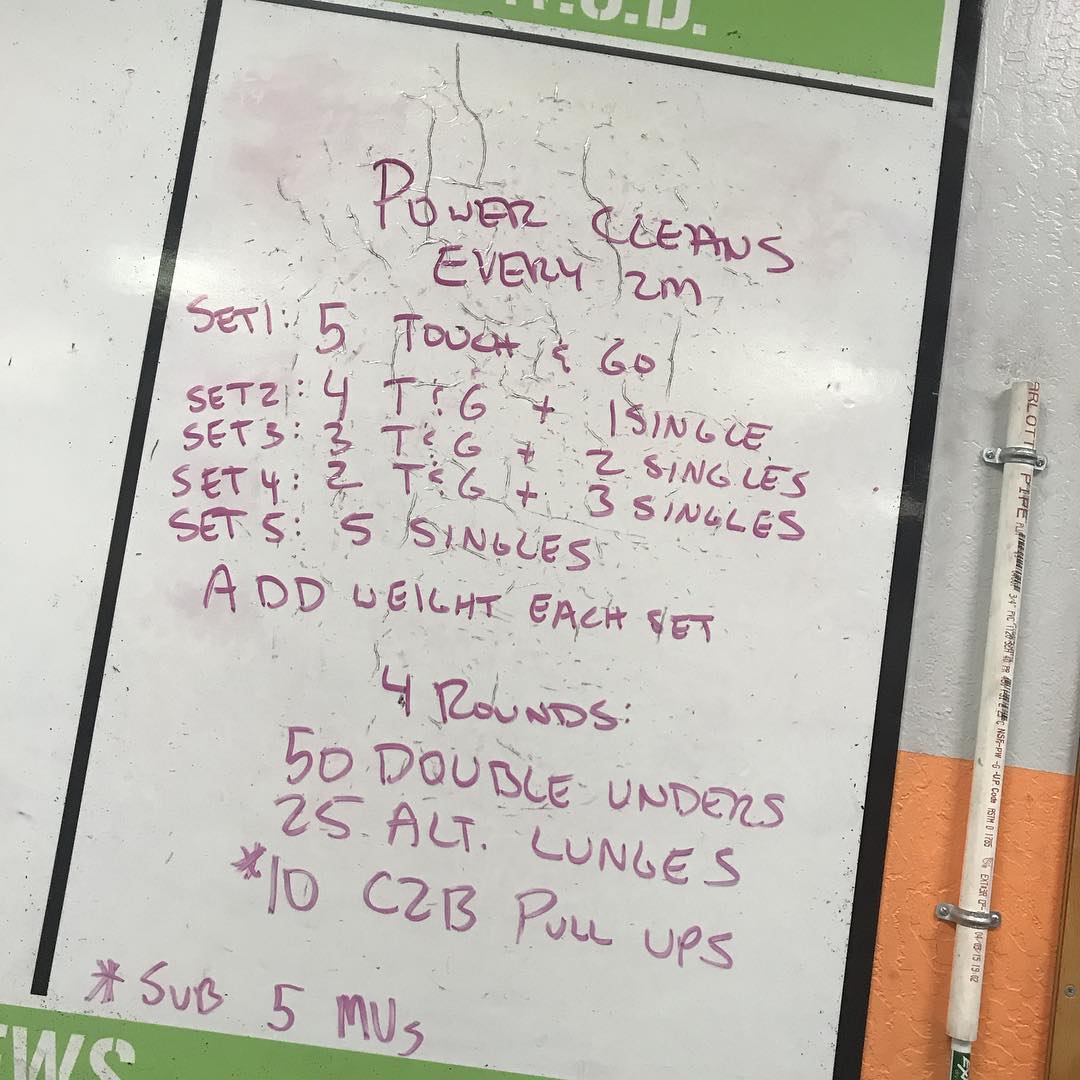 .O.D.
POWER CLEANS
EVERY 2M
SET 1: 5 TOUCH & GO
SET 2: 4 T&G + 1 SINGLE
SET 3: 3 T&G + 2 SINGLES
SET 4: 2 T&G + 3 SINGLES
SET 5: 5 SINGLES
ADD WEIGHT EACH SET
4 ROUNDS:
50 DOUBLE UNDERS
25 ALT. LUNGES
*10 C2B PULL UPS
* SUB 5 MUs
EWS
ARLOTT PIPE 3/4" NSF-PW -G -UP Code ASTM D 1785